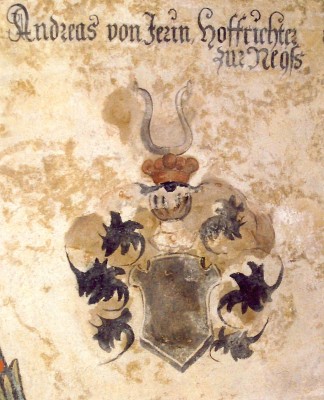 Andreas von Jerin, Hoffrichter
zur Neÿss